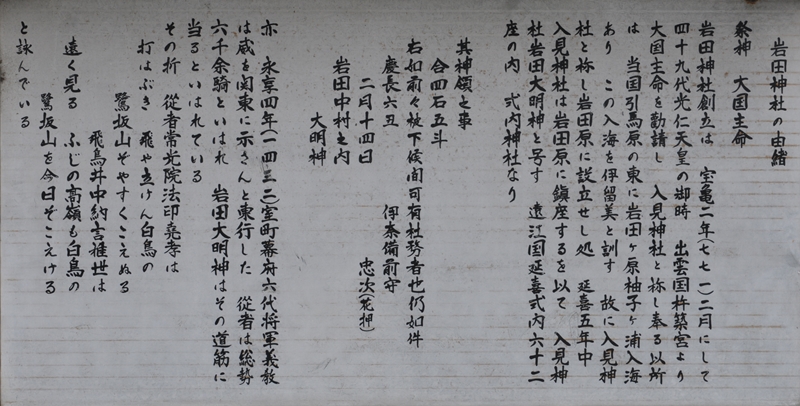 岩田神社の由緒
祭神　大国主命
岩田神社創立は　宝亀二年(七七一)二月にして
四十九代光仁天皇の御時　出雲国杵築宮より
大国主命を勧請し　入見神社と称し奉る以所
は　当国引馬原の東に岩田ヶ原袖子ヶ浦入海
あり　この入海を伊留美と訓す　故に入見神
社と称し岩田原に設立せし処　延喜五年中
入見神社は岩田原に鎮座するを以て　入見神
社岩田大明神と号す　遠江国延喜式内六十二
座の内　式内神社なり
其神領之事
合四石五斗
右如前々被下候間可有社務者也仍如件
慶長六丑　伊奈備前守
二月十四日　忠次(花押)
岩田中村之内
大明神
亦　永享四年(一四三二)室町幕府六代将軍義教
は威を関東に示さんと東行した　従者は総勢
六千余騎といはれ　岩田大明神はその道筋に
当るといはれている
その折　従者常光院法印堯孝は
打はぶき　飛や立けん白鳥の
鷺坂山そやすくこえぬる
飛鳥井中納言雅世は
遠く見る　ふじの高嶺も白鳥の
鷺坂山を今日そこえける
と詠んでいる